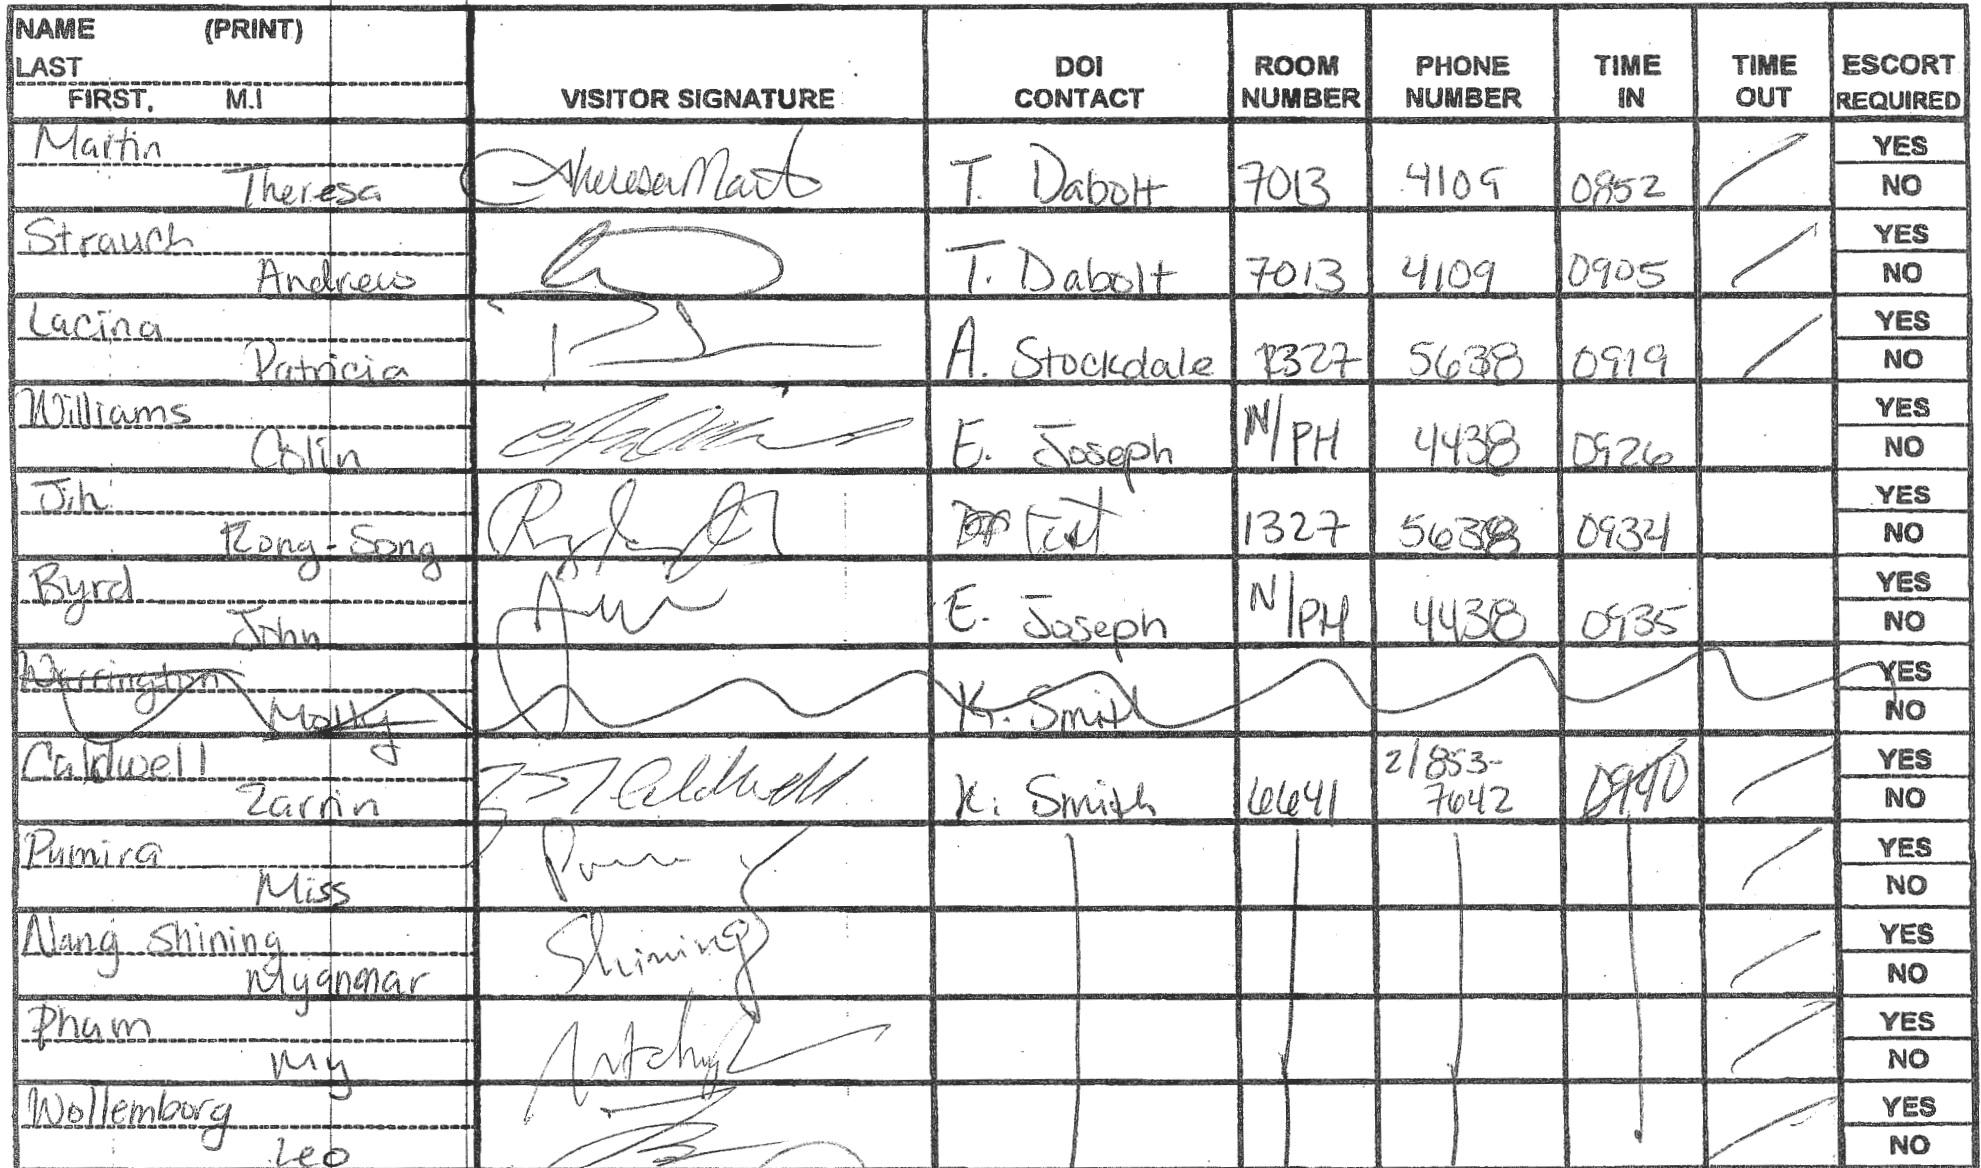 NAME (PRINT)
LAST
FIRST, M.I
VISITOR SIGNATURE
DOI CONTACT
ROOM NUMBER
PHONE NUMBER
TIME IN
TIME OUT
ESCORT REQUIRED
Martin
Theresa Theresa Mart T. Dabolt 7013 4109 0852 YES NO
Strauch
Andrew T. Dabolt 7013 4109 0905 YES NO
Lacina
Patricia A. Stockdale 1327 5638 0919 YES NO
Williams
Colin E. Joseph N/PH 4438 0926 YES NO
Jih
Rong-Song 1327 5638 0934 YES NO
Byrd
John E. Joseph N/PH 4438 0935 YES NO
Warrington
Molly K. Smith YES NO
Caldwell
Zarrin Caldwell K. Smith 6641 2/853-7642 0940 YES NO
Pumira
Miss YES NO
Nang Shining
Myanmar Shining YES NO
Pham
My YES NO
Wollemborg
Leo YES NO